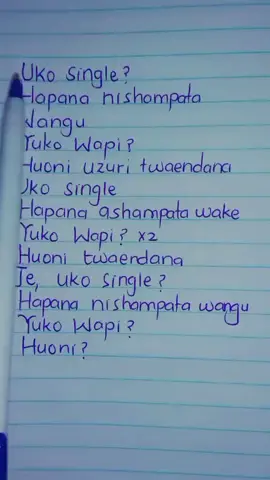 Uko Single?
Hapana nishampata
Wangu
Yuko Wapi?
Huoni uzuri twaendana
Uko Single
Hapana ashampata wake
Yuko Wapi? x2
Huoni twaendana
Je, uko single?
Hapana nishampata wangu
Yuko Wapi?
Huoni?